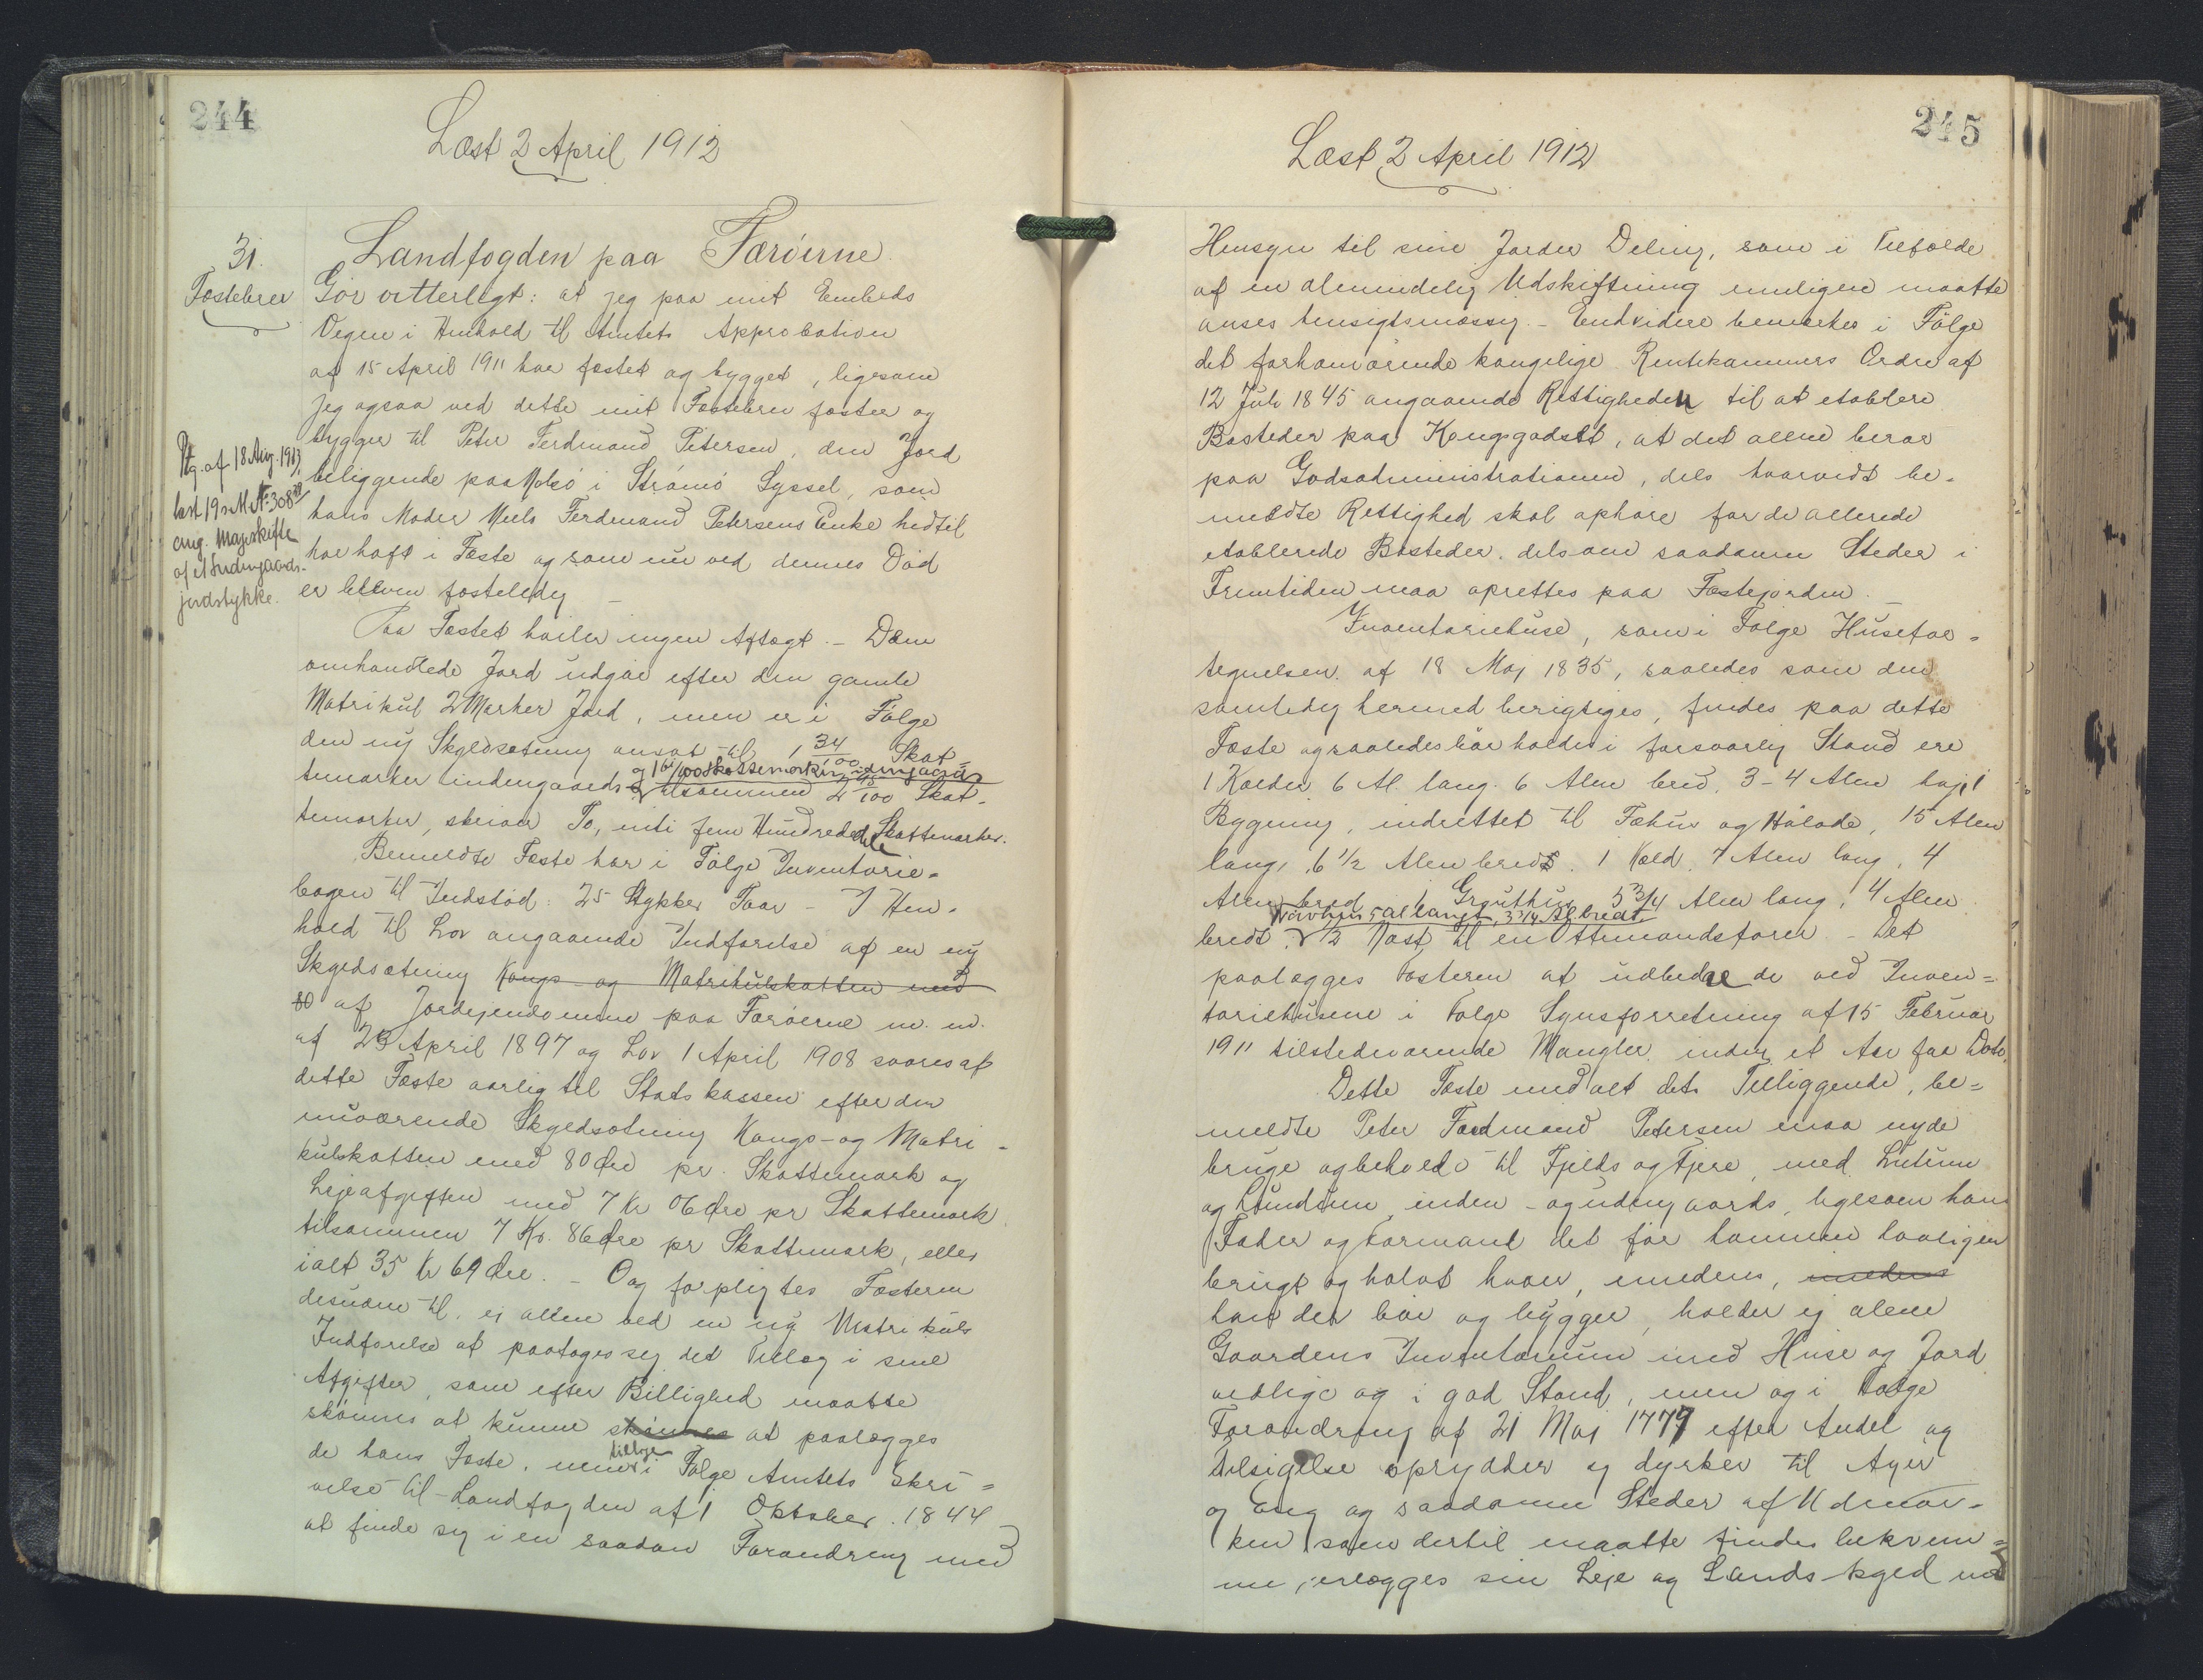 244
Læst 2 April 1912
31.
Fæstebrev
Landfogden paa Færøerne
Gör vitterligt: at jeg paa mit Embeds
Vegne i Henhold til Amtets Approbation
af 15 April 1911 har fæstet og bygget, ligesom
jeg ogsaa ved dette mit Fæstebrev fæster og
bygger til Peter Ferdinand Petersen, den Jord
beliggende paa Nolsö i Strömö Syssel, som
hans Moder Niels Ferdinand Petersens Enke hidtil
har haft i Fæste og som nu ved dennes Död
er bleven fæsteledig –
Ptg. af 18 Aug. 1913,
læst 19 s. M. № 308
ang. Mageskifte
af et Indengaards-
jordstykke.
Paa Fæstet hviler ingen Aftægt. – Den
omhandlede Jord udgör efter den gamle
Matrikul 2 Marker Jord, men er i Fölge
den ny Skyldsætning ansat til 1 34/100 Skat-
temarker indengaards og 1 61/100 Skattemarker udengaards
tilsammen 2 95/100 Skat-
temarker, skriver To, niti fem Hundrededele Skattemarker.
Bemeldte Fæste har i Fölge Inventarie-
bogen til Indstöd: 25 Stykker Faar – I Hen-
hold til Lov angaaende Indförelse af en ny
Skyldsætning Kongs- og Matrikulskatten med
80 af Jordejendomme paa Færöerne m. m.
af 23 April 1897 og Lov 1 April 1908 svares af
dette Fæste aarlig til Statskassen efter den
nuværende Skyldsætning Kongs- og Matri-
kulskatten med 80 Öre pr. Skattemark og
Lejeafgiften med 7 Kr 06 Öre pr Skattemark
tilsammen 7 Kr. 86 Öre pr Skattemark, eller
ialt 35 Kr 69 Öre. – Og forpligtes Fæsteren
desuden til, ej allene ved en ny Matrikuls
Indförelse at paatages sig det Tillæg i sine
Afgifter, som efter Billighed maatte
skönnes at kunne skönnes at paalægges
de hans Fæste, men tillige i Fölge Amtets Skri-
velse til Landfogden af 1 Oktober 1844
at finde sig i en saadan Forandring med
245
Læst 2 April 1912
Hensyn til sine Jorders Deling, som i Tilfælde
af en almindelig Udskiftning muligen maatte
anses hensigtsmæssig. – Endvidere bemærkes i Fölge
det forhenværende kongelige Rentekammers Ordre af
12 Juli 1845 angaaende Rettigheden til at etablere
Bosteder paa Kongsgodset, at det allene beror
paa Godsadministrationen, dels hvorvidt be-
meldte Rettighed skal ophöre for de allerede
etablerede Bosteder, dels om saadanne Steder i
Fremtiden maa oprettes paa Fæstejorden. –
Inventariehuse, som i Fölge Husefor-
tegnelsen af 18 Maj 1835, saaledes som den
samtidig hermed berigtiges, findes paa dette
Fæste og saaledes bör holdes i forsvarlig Stand ere
1 Kælder 6 Al. lang. 6 Alen bred, 3–4 Alen höj, 1
Bygning, indrettet til Fæhus og Hölade, 15 Alen
lang, 6 1/2 Alen bred. 1 Kold, 7 Alen lang, 4
Alen bred 1 Grouthus 5 3/4 Alen lang, 4 Alen
bredt. 5 Al langt, 3 3/4 Al bredt. 1/2 Nöst til en Ottemandsfarer – Det
paalægges Fæsteren at udbedre de ved Inven-
tariehusene i Fölge Synsforretning af 15 Februar
1911 tilstedeværende Mangler inden et Aar fra Dato.
Dette Fæste med alt dets Tilliggende, be-
meldte Peter Ferdinand Petersen maa nyde
bruge og beholde til Fjelds og Fjere, med Lutum
og Lundum inden- og udengaards, ligesom hans
Fader og Formænd det för hannem lovligen
brugt og havt haver, imedens, imedens
han der bor og bygger, holder ej alene
Gaardens Inventarium med Huse og Jord
vedlige og i god Stand, men og i Fölge
Forordning af 21 Maj 1779 efter Andel og
tilsigelse oprydder og dyrker til Ager
og Eng og saadanne Steder af Udmar-
ken som dertil maatte findes bekvem-
me, erlægges sin Leje og Landskyld med